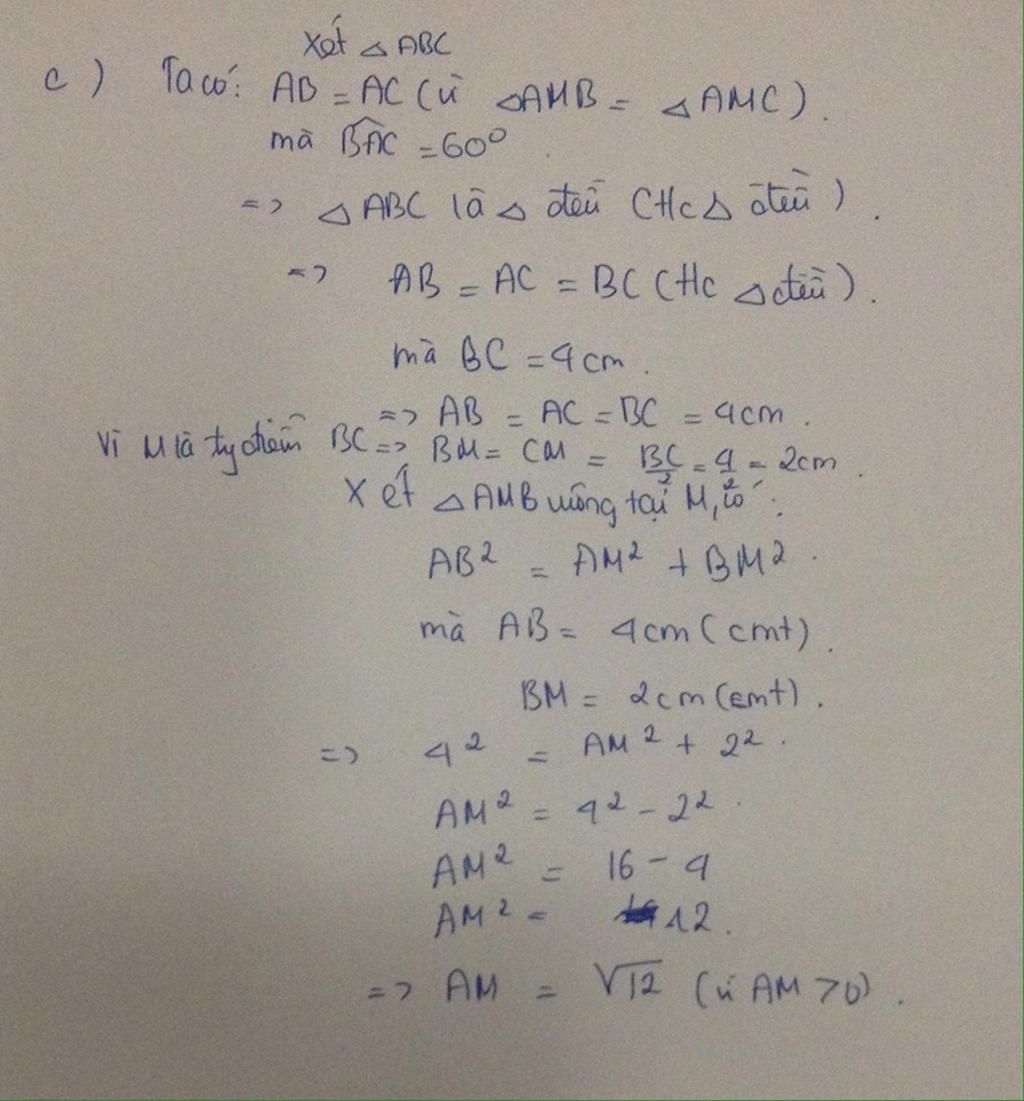 Xét △ ABC
c) Ta có: AB = AC (vì △AMB = △AMC).
mà B̂AC = 60°
=> △ABC là △ đều (Hc△ đều).
=> AB = AC = BC (Hc △đều).
mà BC = 4cm.
=> AB = AC = BC = 4cm.
Vì M là tg điểm BC => BM = CM = BC/2 = 4/2 = 2cm.
Xét △AMB vuông tại M, có:
AB² = AM² + BM².
mà AB = 4cm (cmt).
BM = 2cm (cmt).
=> 4² = AM² + 2².
AM² = 4² - 2².
AM² = 16 - 4
AM² = 12.
=> AM = √12 (vì AM > 0).